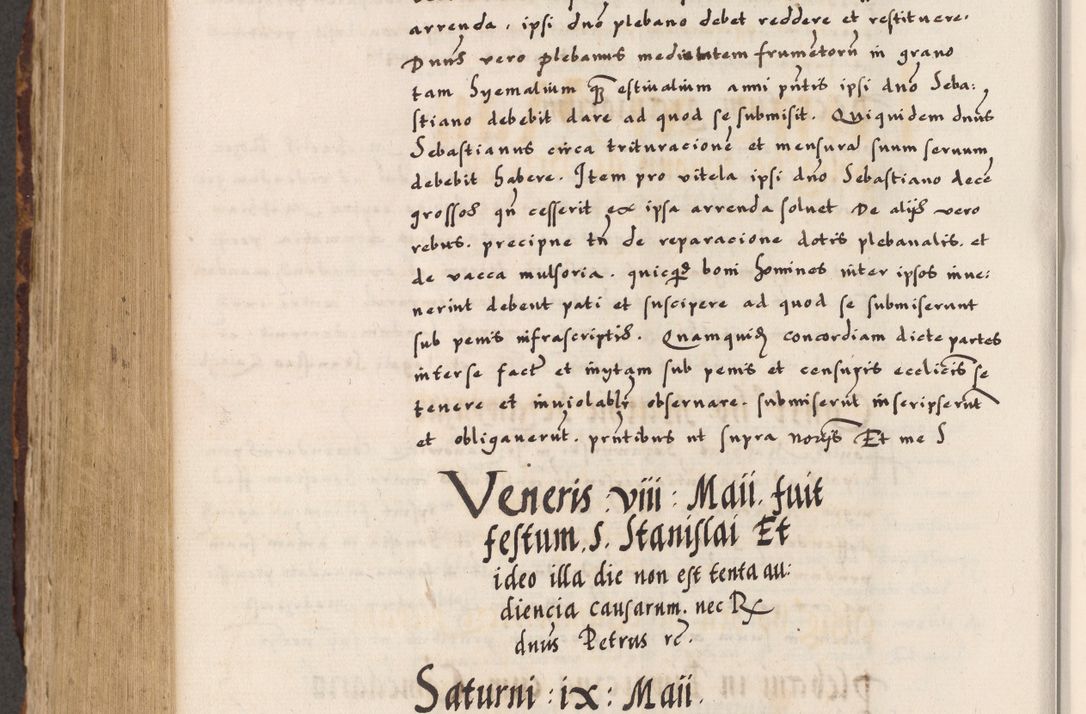 arrenda . ipsi dno plebano debet reddere et restituere.
Dnus vero plebanus medietatem frumētorū in grano
tam hyemalium qz estiualium anni pntis ipsi dno Seba:
stiano debebit dare ad quod se submisit. Quiquidem dnus
Sebastianus circa trituracionē et mensurā suum seruum
debebit habere. Item pro vitela ipsi dno Sebastiano decē
grossos qn cesserit ex ipsa arrenda soluet De alijs vero
rebus. precipue tn de reparacione dotis plebanalis. et
de vacca mulsoria . quicqd boni homines inter ipsos inue:
nerint debent pati et suscipere ad quod se submiserunt
sub penis infrascriptis. Quamquid concordiam dicte partes
inter se fact et initam sub penis et censuris ecclicis se
tenere et inuiolablr obseruare. submiserūt inscripserūt
et obligauerūt. pntibus ut supra notrijs Et me S
Veneris : viii : Maii. fuit
festum. S. Stanislai Et
ideo illa die non est tenta au:
diencia causarum. nec R
dnus Petrus rc.
Saturni : ix : Maii.